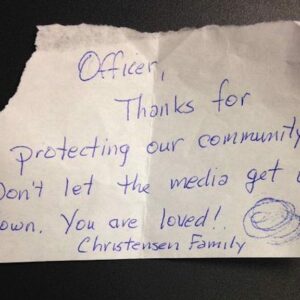 Officer,
Thanks for
protecting our community
Don't let the media get
own. You are loved!!
Christensen Family